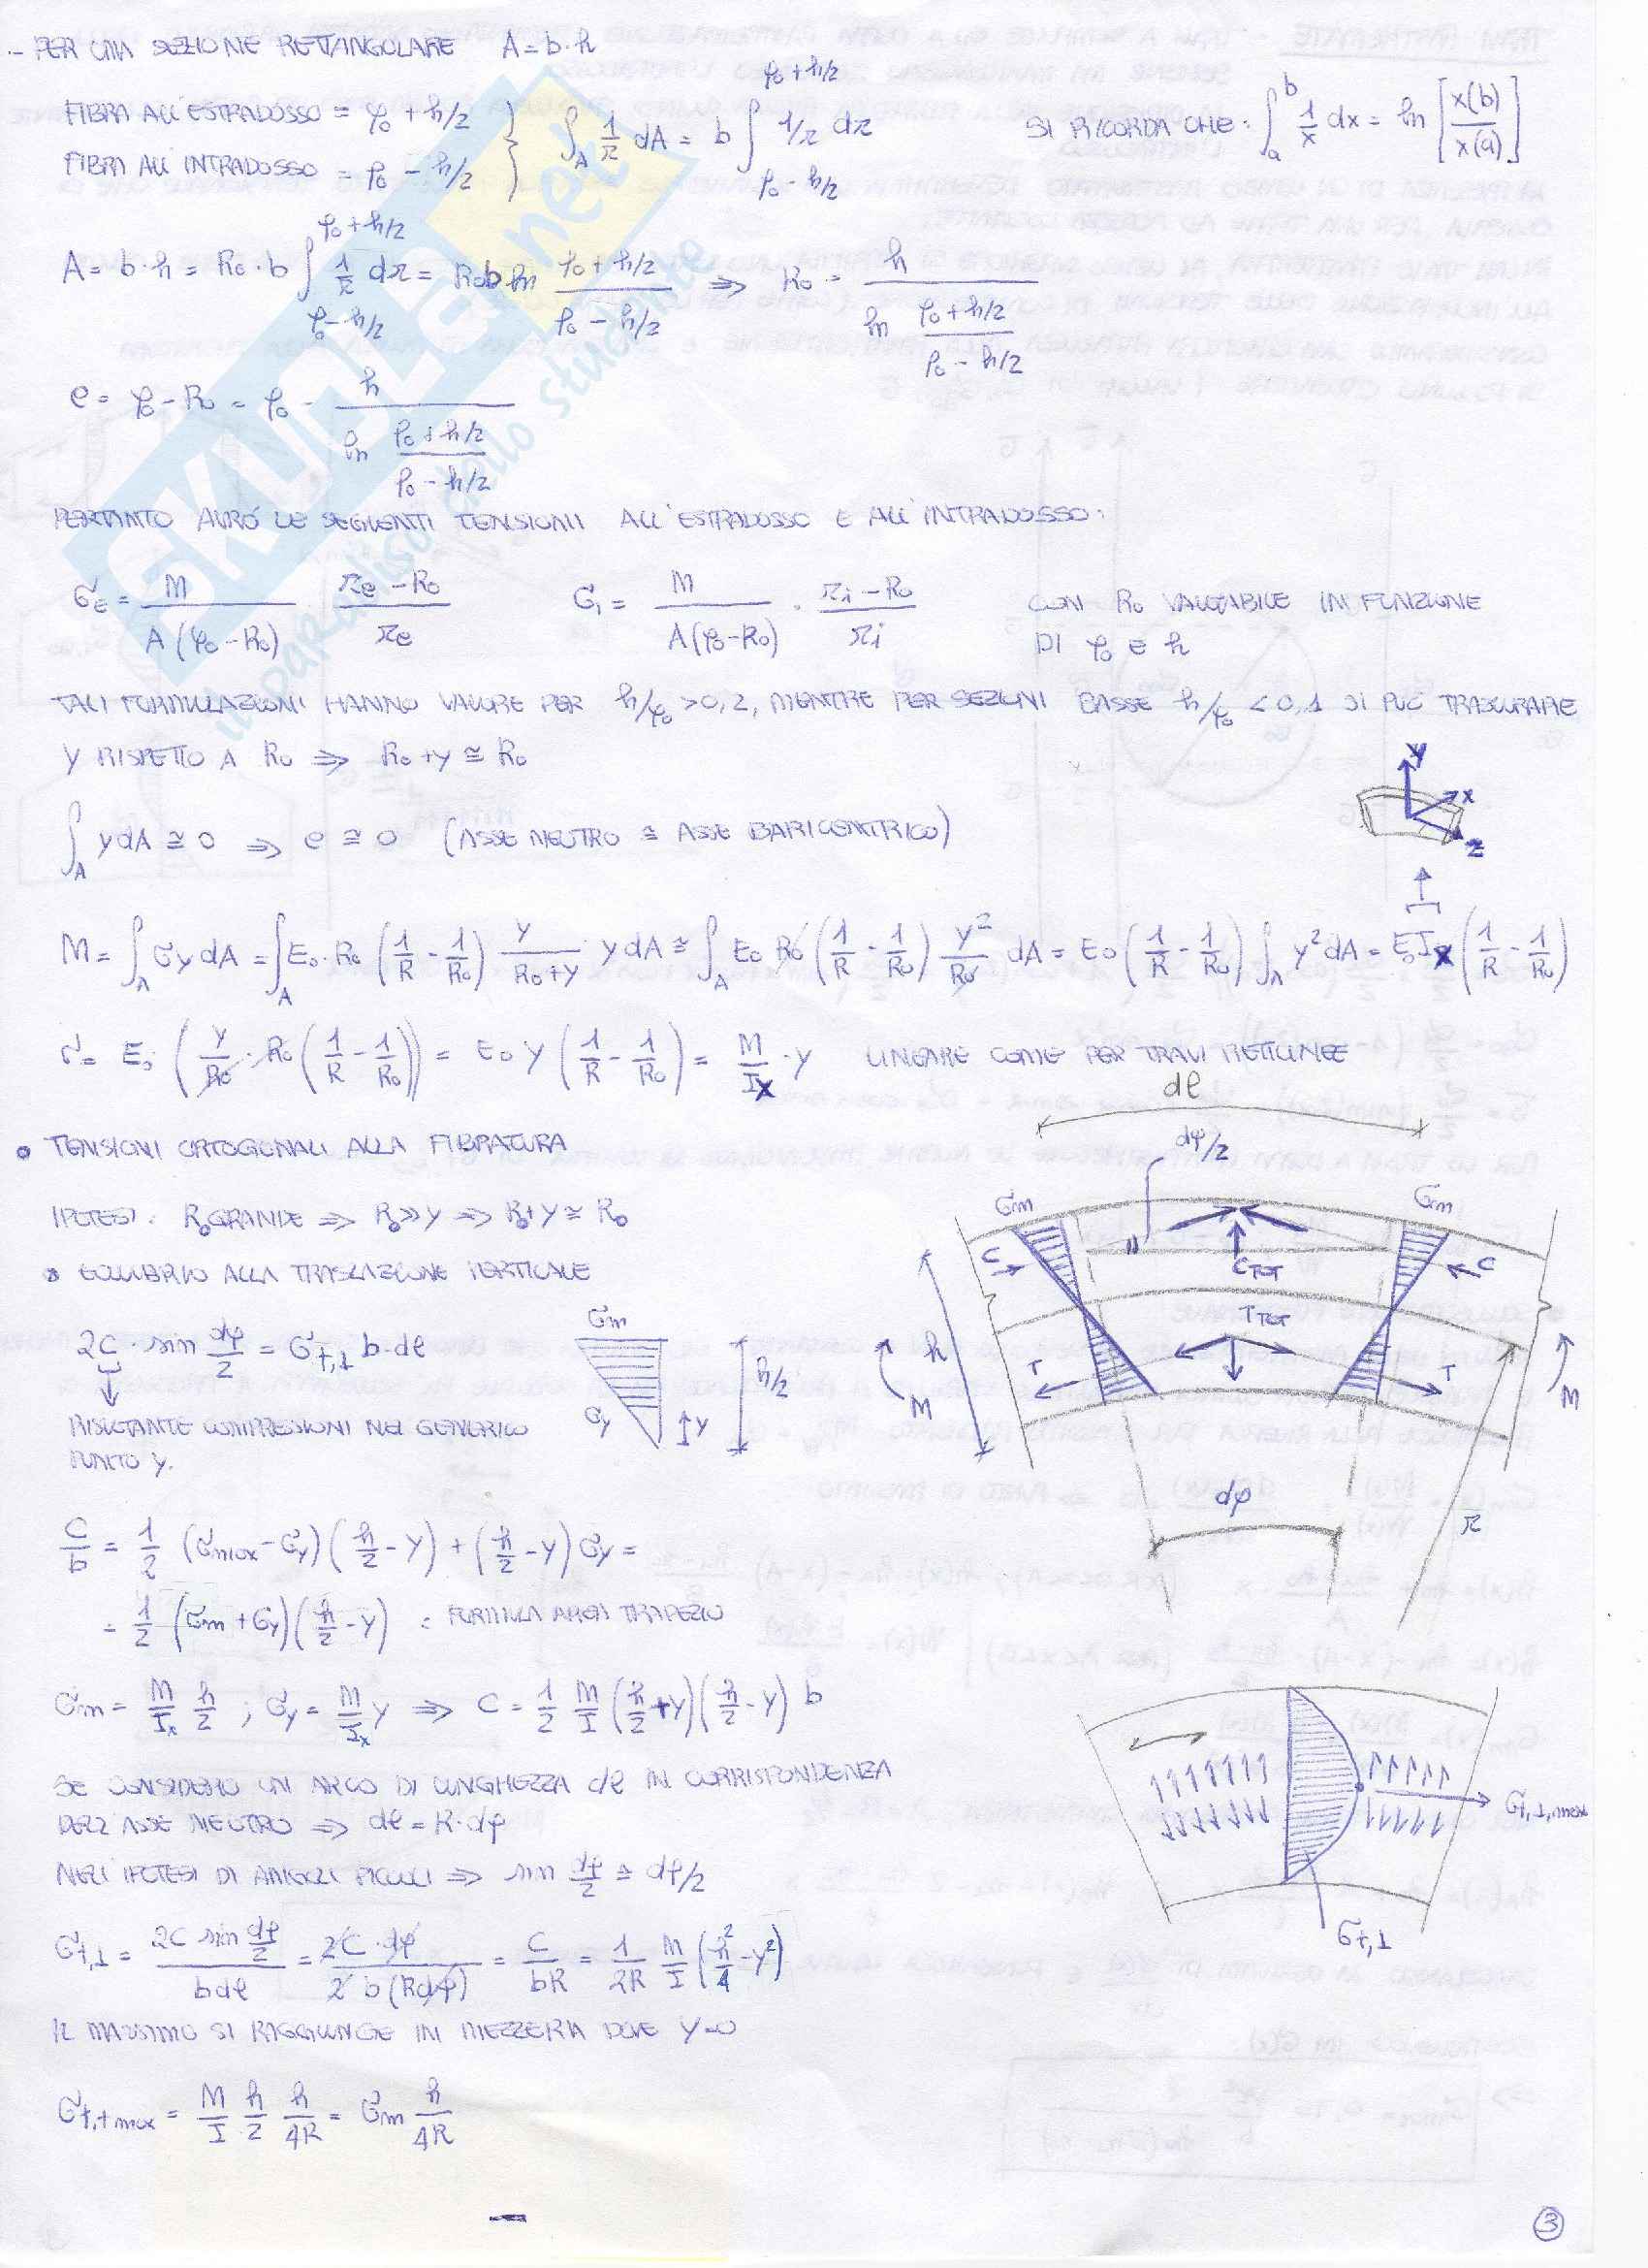 - PER UNA SEZIONE RETTANGOLARE A = b·h
FIBRA ALL'ESTRADOSSO = ρ₀ + h/2
FIBRA ALL'INTRADOSSO = ρ₀ - h/2
∫_A 1/r dA = b ∫_{ρ₀-h/2}^{ρ₀+h/2} 1/r dr
SI RICORDA CHE: ∫_a^b 1/x dx = ln [x(b)/x(a)]
A = b·h = R₀·b ∫_{ρ₀-h/2}^{ρ₀+h/2} 1/r dr = R₀ b ln (ρ₀+h/2)/(ρ₀-h/2) ⇒ R₀ = h / ln (ρ₀+h/2)/(ρ₀-h/2)
e = ρ₀ - R₀ = ρ₀ - h / ln (ρ₀+h/2)/(ρ₀-h/2)
PERTANTO AVRÒ LE SEGUENTI TENSIONI ALL'ESTRADOSSO E ALL'INTRADOSSO:
σ_E = M/(A(ρ₀-R₀)) · (r_e-R₀)/r_e
σ_i = M/(A(ρ₀-R₀)) · (r_i-R₀)/r_i
CON R₀ VALUTABILE IN FUNZIONE
DI ρ₀ E h
TALI FORMULAZIONI HANNO VALORE PER h/ρ₀ > 0,2, MENTRE PER SEZIONI BASSE h/ρ₀ < 0,1 SI PUÒ TRASCURARE
y RISPETTO A R₀ ⇒ R₀+y ≅ R₀
y
x
z
∫_A y dA ≅ 0 ⇒ e ≅ 0 (ASSE NEUTRO ≅ ASSE BARICENTRICO)
M = ∫_A σy dA = ∫_A E₀·R₀ (1/R - 1/R₀) y/(R₀+y) · y dA ≅ ∫_A E₀ R₀ (1/R - 1/R₀) y²/R₀ dA = E₀ (1/R - 1/R₀) ∫_A y² dA = E₀ I_x (1/R - 1/R₀)
σ = E₀ (y/R₀ · R₀ (1/R - 1/R₀)) = E₀ y (1/R - 1/R₀) = M/I_x · y LINEARE COME PER TRAVI RETTILINEE
• TENSIONI ORTOGONALI ALLA FIBRATURA
IPOTESI: R₀ GRANDE ⇒ R₀ >> y ⇒ R₀+y ≅ R₀
• EQUILIBRIO ALLA TRASLAZIONE VERTICALE
2C · sin dφ/2 = σ_{t,⊥} b·dl
RISULTANTE COMPRESSIONI NEL GENERICO
PUNTO y.
σm
σy
y
h/2
dl
dφ/2
σm
σm
C
C
C_TOT
T_TOT
T
T
h
M
M
dφ
r
C/b = 1/2 (σmax - σy)(h/2 - y) + (h/2 - y) σy =
= 1/2 (σm + σy)(h/2 - y) = FORMULA AREA TRAPEZIO
σm = M/I_x h/2 ; σy = M/I_x y ⇒ C = 1/2 M/I (h/2 + y)(h/2 - y) b
SE CONSIDERO UN ARCO DI LUNGHEZZA dl IN CORRISPONDENZA
DELL'ASSE NEUTRO ⇒ dl = R·dφ
NELL'IPOTESI DI ANGOLI PICCOLI ⇒ sin dφ/2 ≅ dφ/2
σ_{t,⊥} = 2C sin dφ/2 / b dl = 2C·dφ / 2 b (R dφ) = C/bR = 1/2R M/I (h²/4 - y²)
σ_{t,⊥,max}
σ_{t,⊥}
IL MASSIMO SI RAGGIUNGE IN MEZZERIA DOVE y=0
σ_{t,t max} = M/I h/2 h/4R = σm h/4R
3
SKUOLA.net
un paradiso dello studente